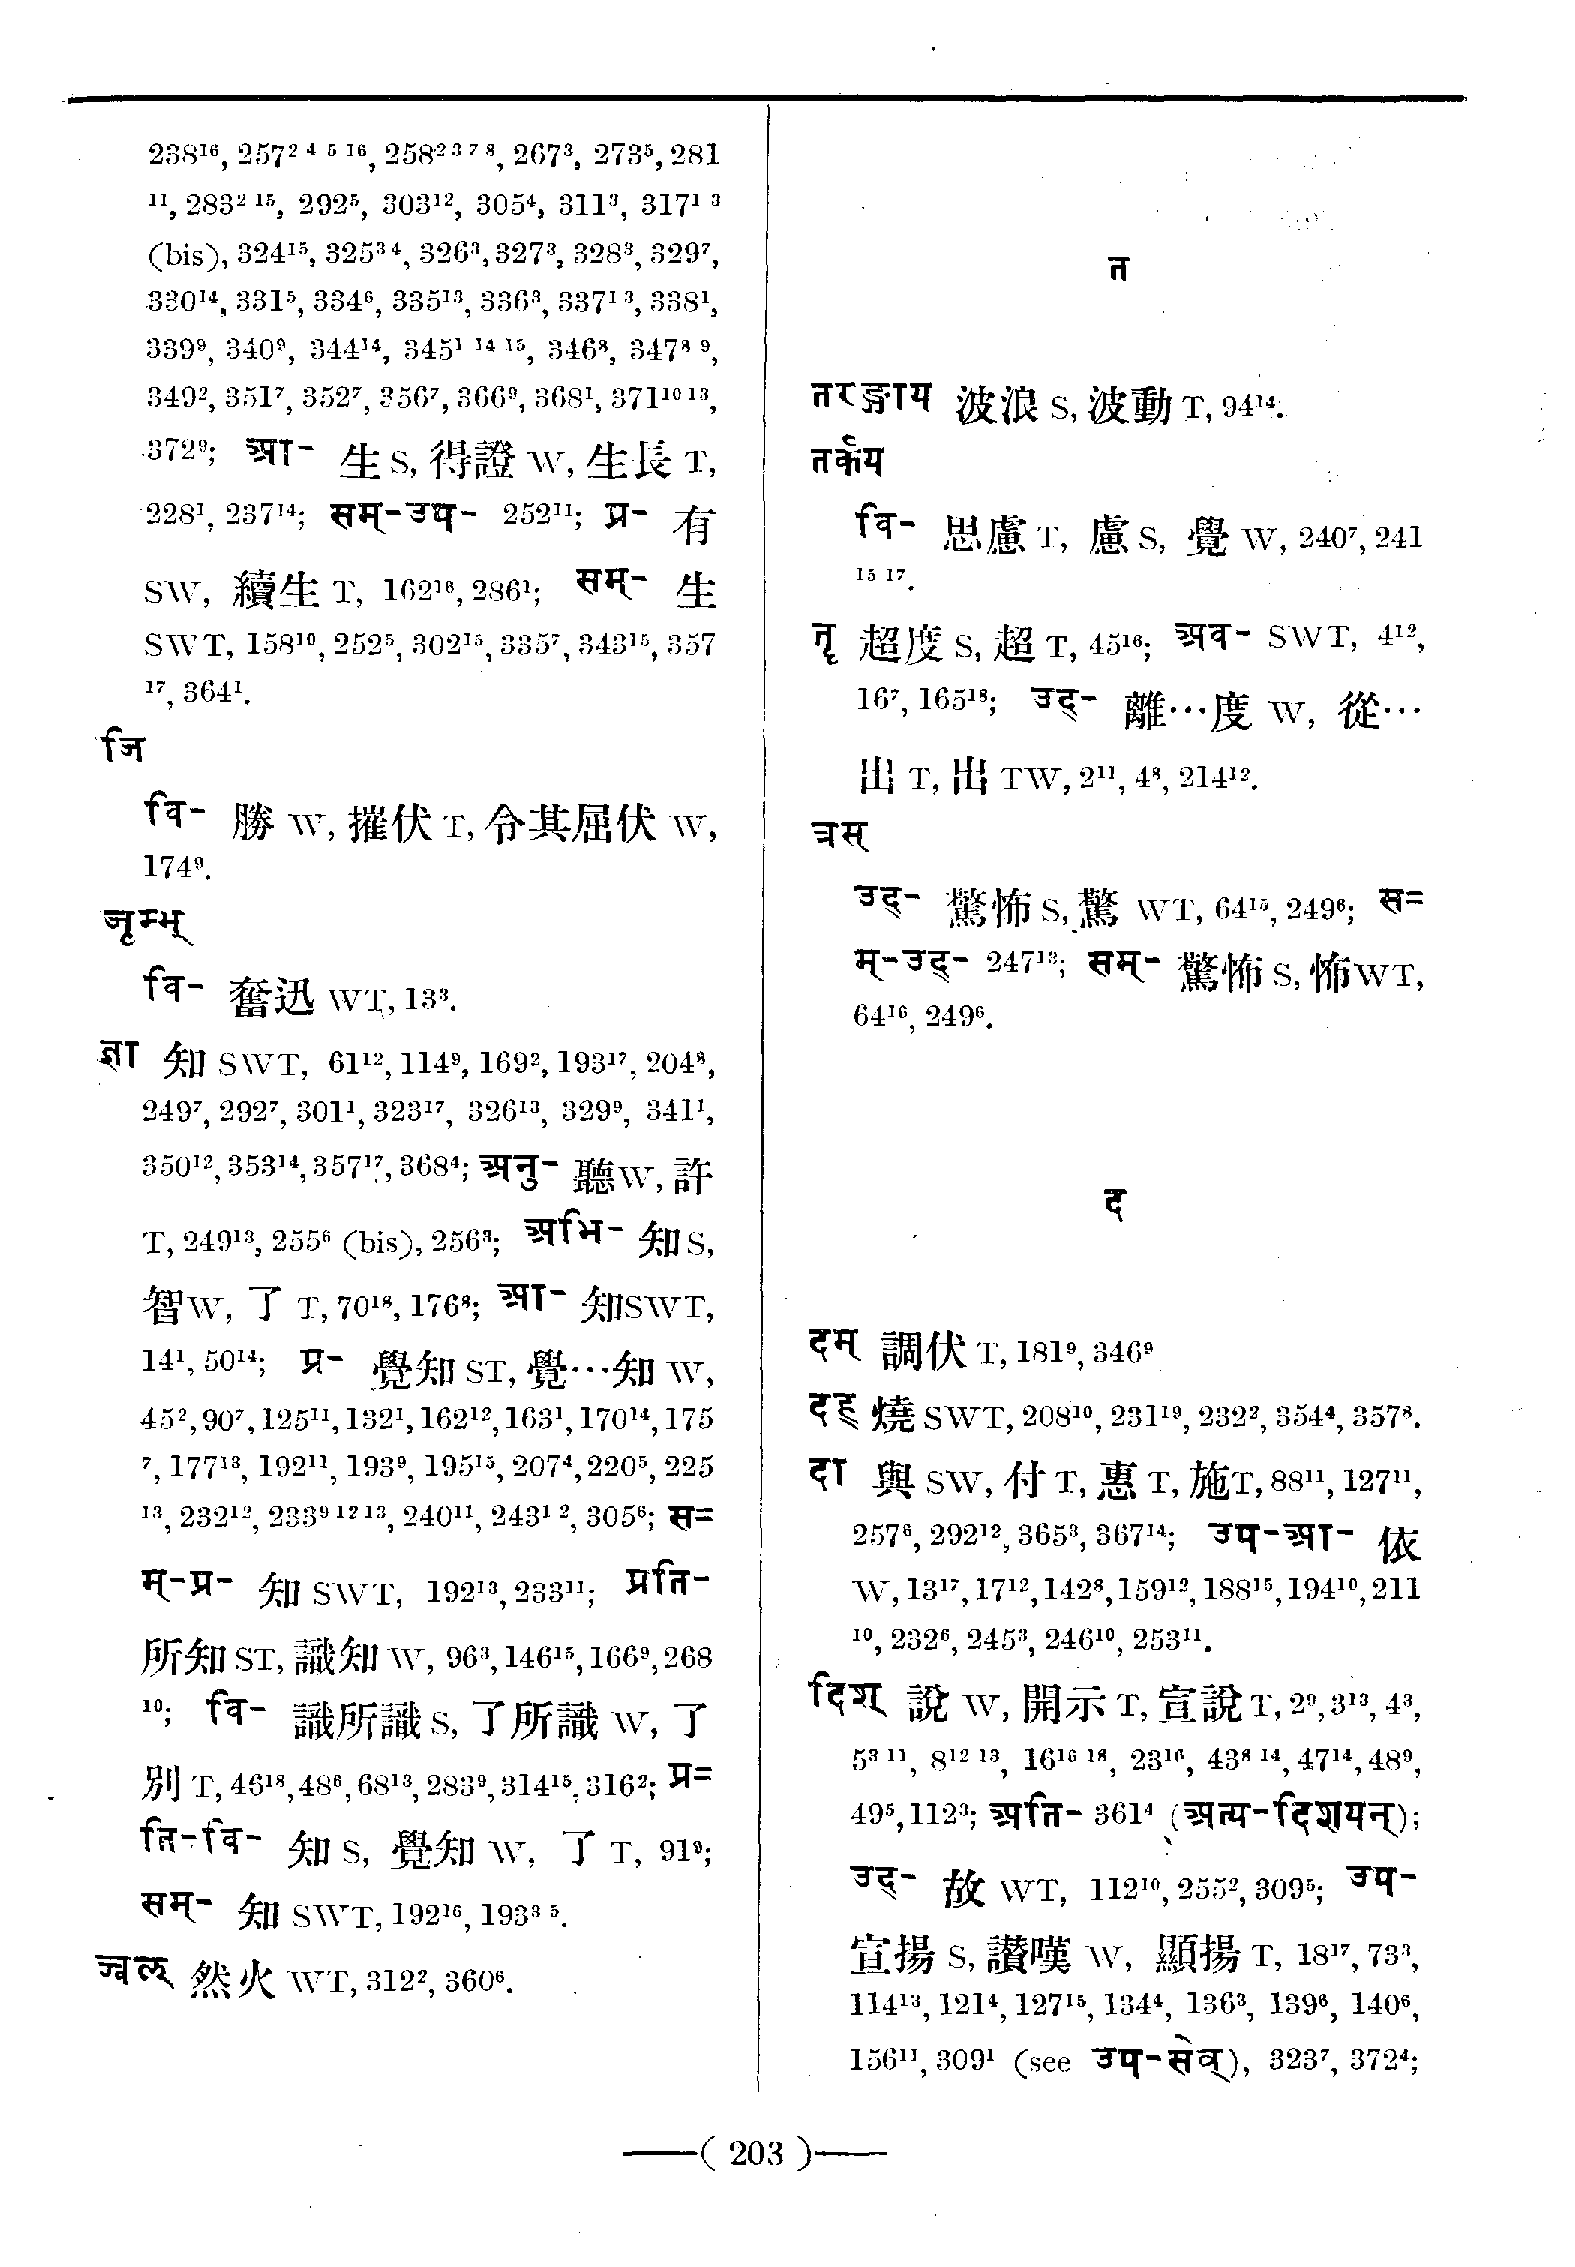 238¹⁶, 257² ⁴ ⁵ ¹⁶, 258² ³ ⁷ ⁸, 267³, 273⁵, 281
¹¹, 283² ¹⁵, 292⁵, 303¹², 305⁴, 311³, 317¹ ³
(bis), 324¹⁵, 325³ ⁴, 326³, 327³, 328³, 329⁷,
330¹⁴, 331⁵, 334⁶, 335¹³, 336³, 337¹ ³, 338¹,
339⁹, 340⁹, 344¹⁴, 345¹ ¹⁴ ¹⁵, 346⁸, 347⁸ ⁹,
349², 351⁷, 352⁷, 356⁷, 366⁹, 368¹, 371¹⁰ ¹³,
372⁹; आ- 生 S, 得證 W, 生長 T,
228¹, 237¹⁴; सम्-उप- 252¹¹; प्र- 有
SW, 續生 T, 162¹⁶, 286¹; सम्- 生
SWT, 158¹⁰, 252⁵, 302¹⁵, 335⁷, 343¹⁵, 357
¹⁷, 364¹.
जि
वि- 勝 W, 摧伏 T, 令其屈伏 W,
174⁹.
जृम्भ्
वि- 奮迅 WT, 13³.
ज्ञा 知 SWT, 61¹², 114⁹, 169², 193¹⁷, 204⁸,
249⁷, 292⁷, 301¹, 323¹⁷, 326¹³, 329⁹, 341¹,
350¹², 353¹⁴, 357¹⁷, 368⁴; अनु- 聽 W, 許
T, 249¹³, 255⁶ (bis), 256³; अभि- 知 S,
智 W, 了 T, 70¹⁸, 176⁸; आ- 知 SWT,
14¹, 50¹⁴; प्र- 覺知 ST, 覺…知 W,
45², 90⁷, 125¹¹, 132¹, 162¹², 163¹, 170¹⁴, 175
⁷, 177¹³, 192¹¹, 193⁹, 195¹⁵, 207⁴, 220⁵, 225
¹³, 232¹², 233⁹ ¹² ¹³, 240¹¹, 243¹ ², 305⁶; स=
म्-प्र- 知 SWT, 192¹³, 233¹¹; प्रति-
所知 ST, 識知 W, 96³, 146¹⁵, 166⁹, 268
¹⁰; वि- 識所識 S, 了所識 W, 了
別 T, 46¹⁸, 48⁶, 68¹³, 283⁹, 314¹⁵, 316²; प्र=
ति-वि- 知 S, 覺知 W, 了 T, 91⁹;
सम्- 知 SWT, 192¹⁶, 193³ ⁵.
ज्वल् 然火 WT, 312², 360⁶.
त
तरङ्गाय 波浪 S, 波動 T, 94¹⁴.
तर्कय
वि- 思慮 T, 慮 S, 覺 W, 240⁷, 241
¹⁵ ¹⁷.
तॄ 超度 S, 超 T, 45¹⁶; अव- SWT, 4¹²,
16⁷, 165¹⁸; उद्- 離…度 W, 從…
出 T, 出 TW, 2¹¹, 4⁸, 214¹².
त्रस्
उद्- 驚怖 S, 驚 WT, 64¹⁵, 249⁶; स=
म्-उद्- 247¹³; सम्- 驚怖 S, 怖 WT,
64¹⁶, 249⁶.
द
दम् 調伏 T, 181⁹, 346⁹
दह् 燒 SWT, 208¹⁰, 231¹⁹, 232², 354⁴, 357⁸.
दा 與 SW, 付 T, 惠 T, 施 T, 88¹¹, 127¹¹,
257⁶, 292¹², 365³, 367¹⁴; उप-आ- 依
W, 13¹⁷, 17¹², 142⁸, 159¹², 188¹⁵, 194¹⁰, 211
¹⁰, 232⁶, 245³, 246¹⁰, 253¹¹.
दिश् 說 W, 開示 T, 宣說 T, 2⁹, 3¹³, 4³,
5³ ¹¹, 8¹² ¹³, 16¹⁶ ¹⁸, 23¹⁶, 43⁸ ¹⁴, 47¹⁴, 48⁹,
49⁵, 112³; अति- 361⁴ (अत्य-दिशयन्);
उद्- 故 WT, 112¹⁰, 255², 309⁵; उप-
宣揚 S, 讚嘆 W, 顯揚 T, 18¹⁷, 73³,
114¹³, 121⁴, 127¹⁵, 134⁴, 136³, 139⁶, 140⁶,
156¹¹, 309¹ (see उप-सेव्), 323⁷, 372⁴;
——( 203 )——